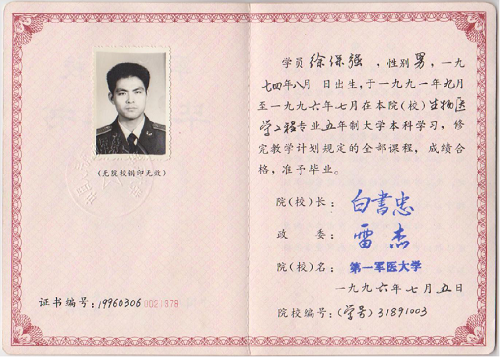 (无院校钢印无效)
证书编号:19960306 002378
学员徐保强,性别男,一九
七四年八月 日出生,于一九九一年九月
至一九九六年七月在本院(校)生物医
学工程专业五年制大学本科学习,修
完教学计划规定的全部课程,成绩合
格,准予毕业。
院(校)长: 白书忠
政 委: 雷杰
院(校)名: 第一军医大学
一九九六年七月五日
院校编号:(学号)31891003